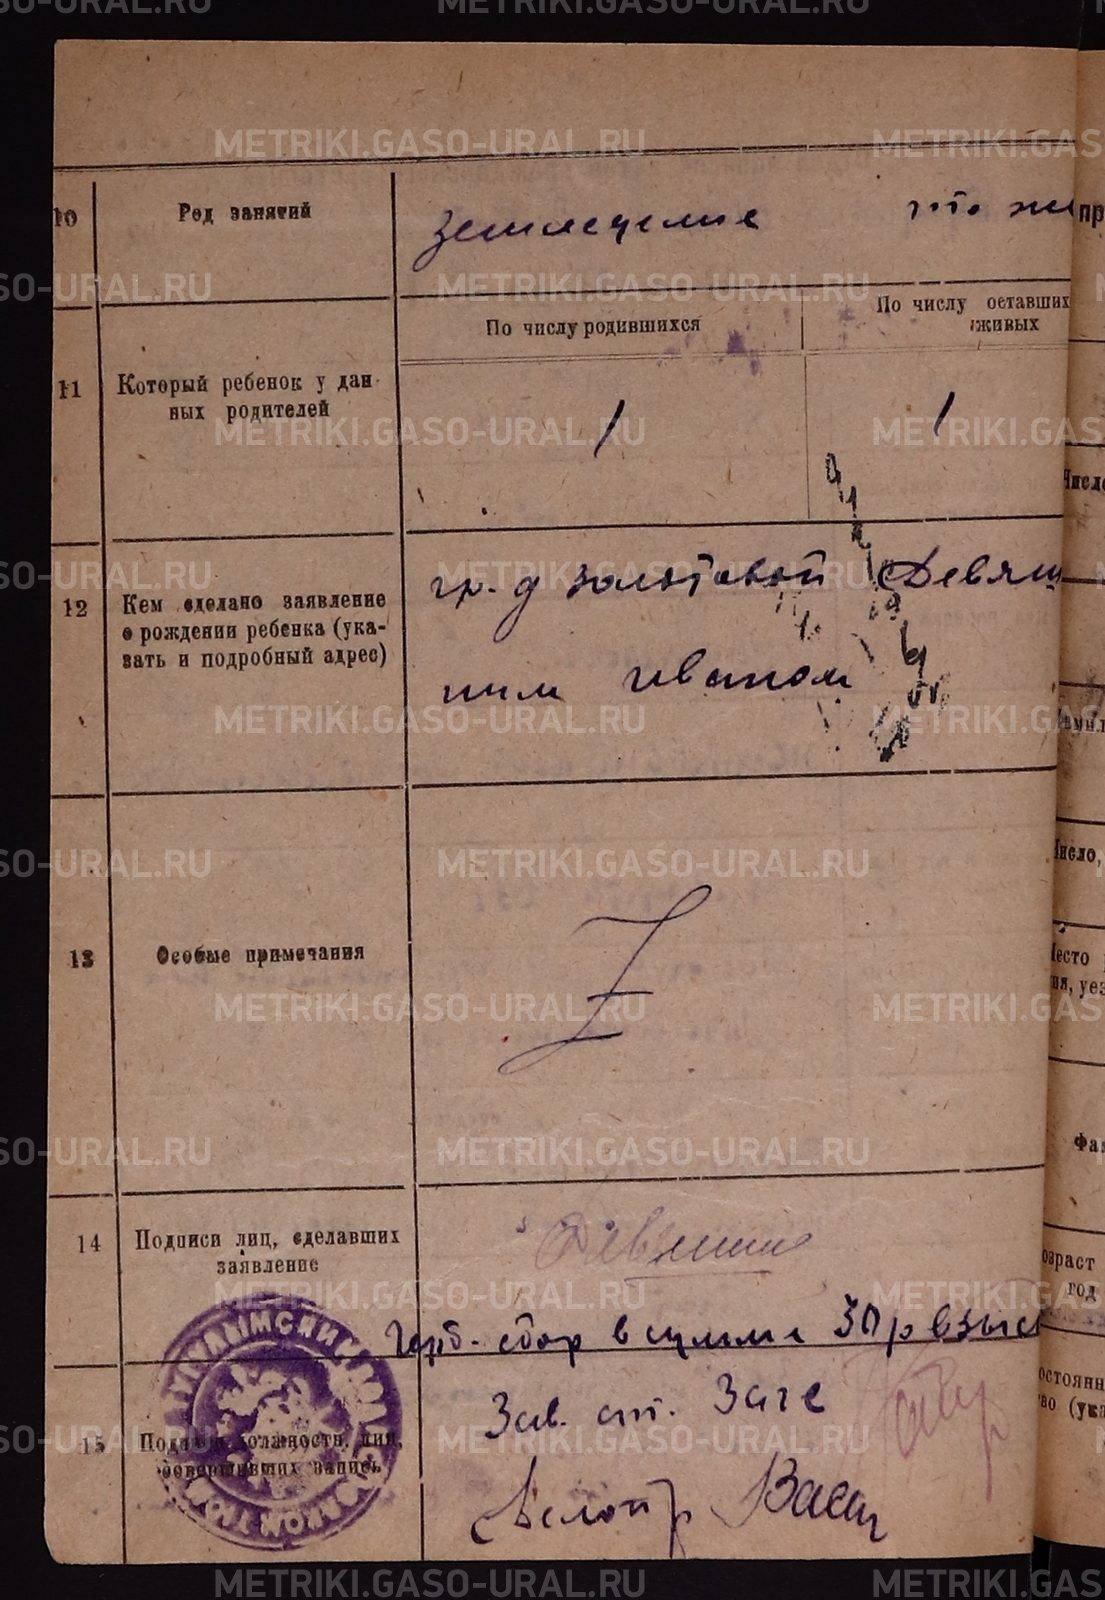 METRIKI.GASO-URAL.RU
10 Род занятий
земледелие то же
По числу родившихся
По числу оставших
живых
11 Который ребенок у дан-
ных родителей
1 1
12 Кем сделано заявление
о рождении ребенка (ука-
зать и подробный адрес)
гр. д Золотовой Девят
ним Иваном
13 Особые примечания
Z
14 Подписи лиц, сделавших
заявление
Герб. сбор в сумме 30 р взыс
15 Подписи должностн. лиц,
совершивших запись
Зав. от. Загс
Число
Число,
Место
ия, уез
Фам
озраст
год
остоянн
во (ука